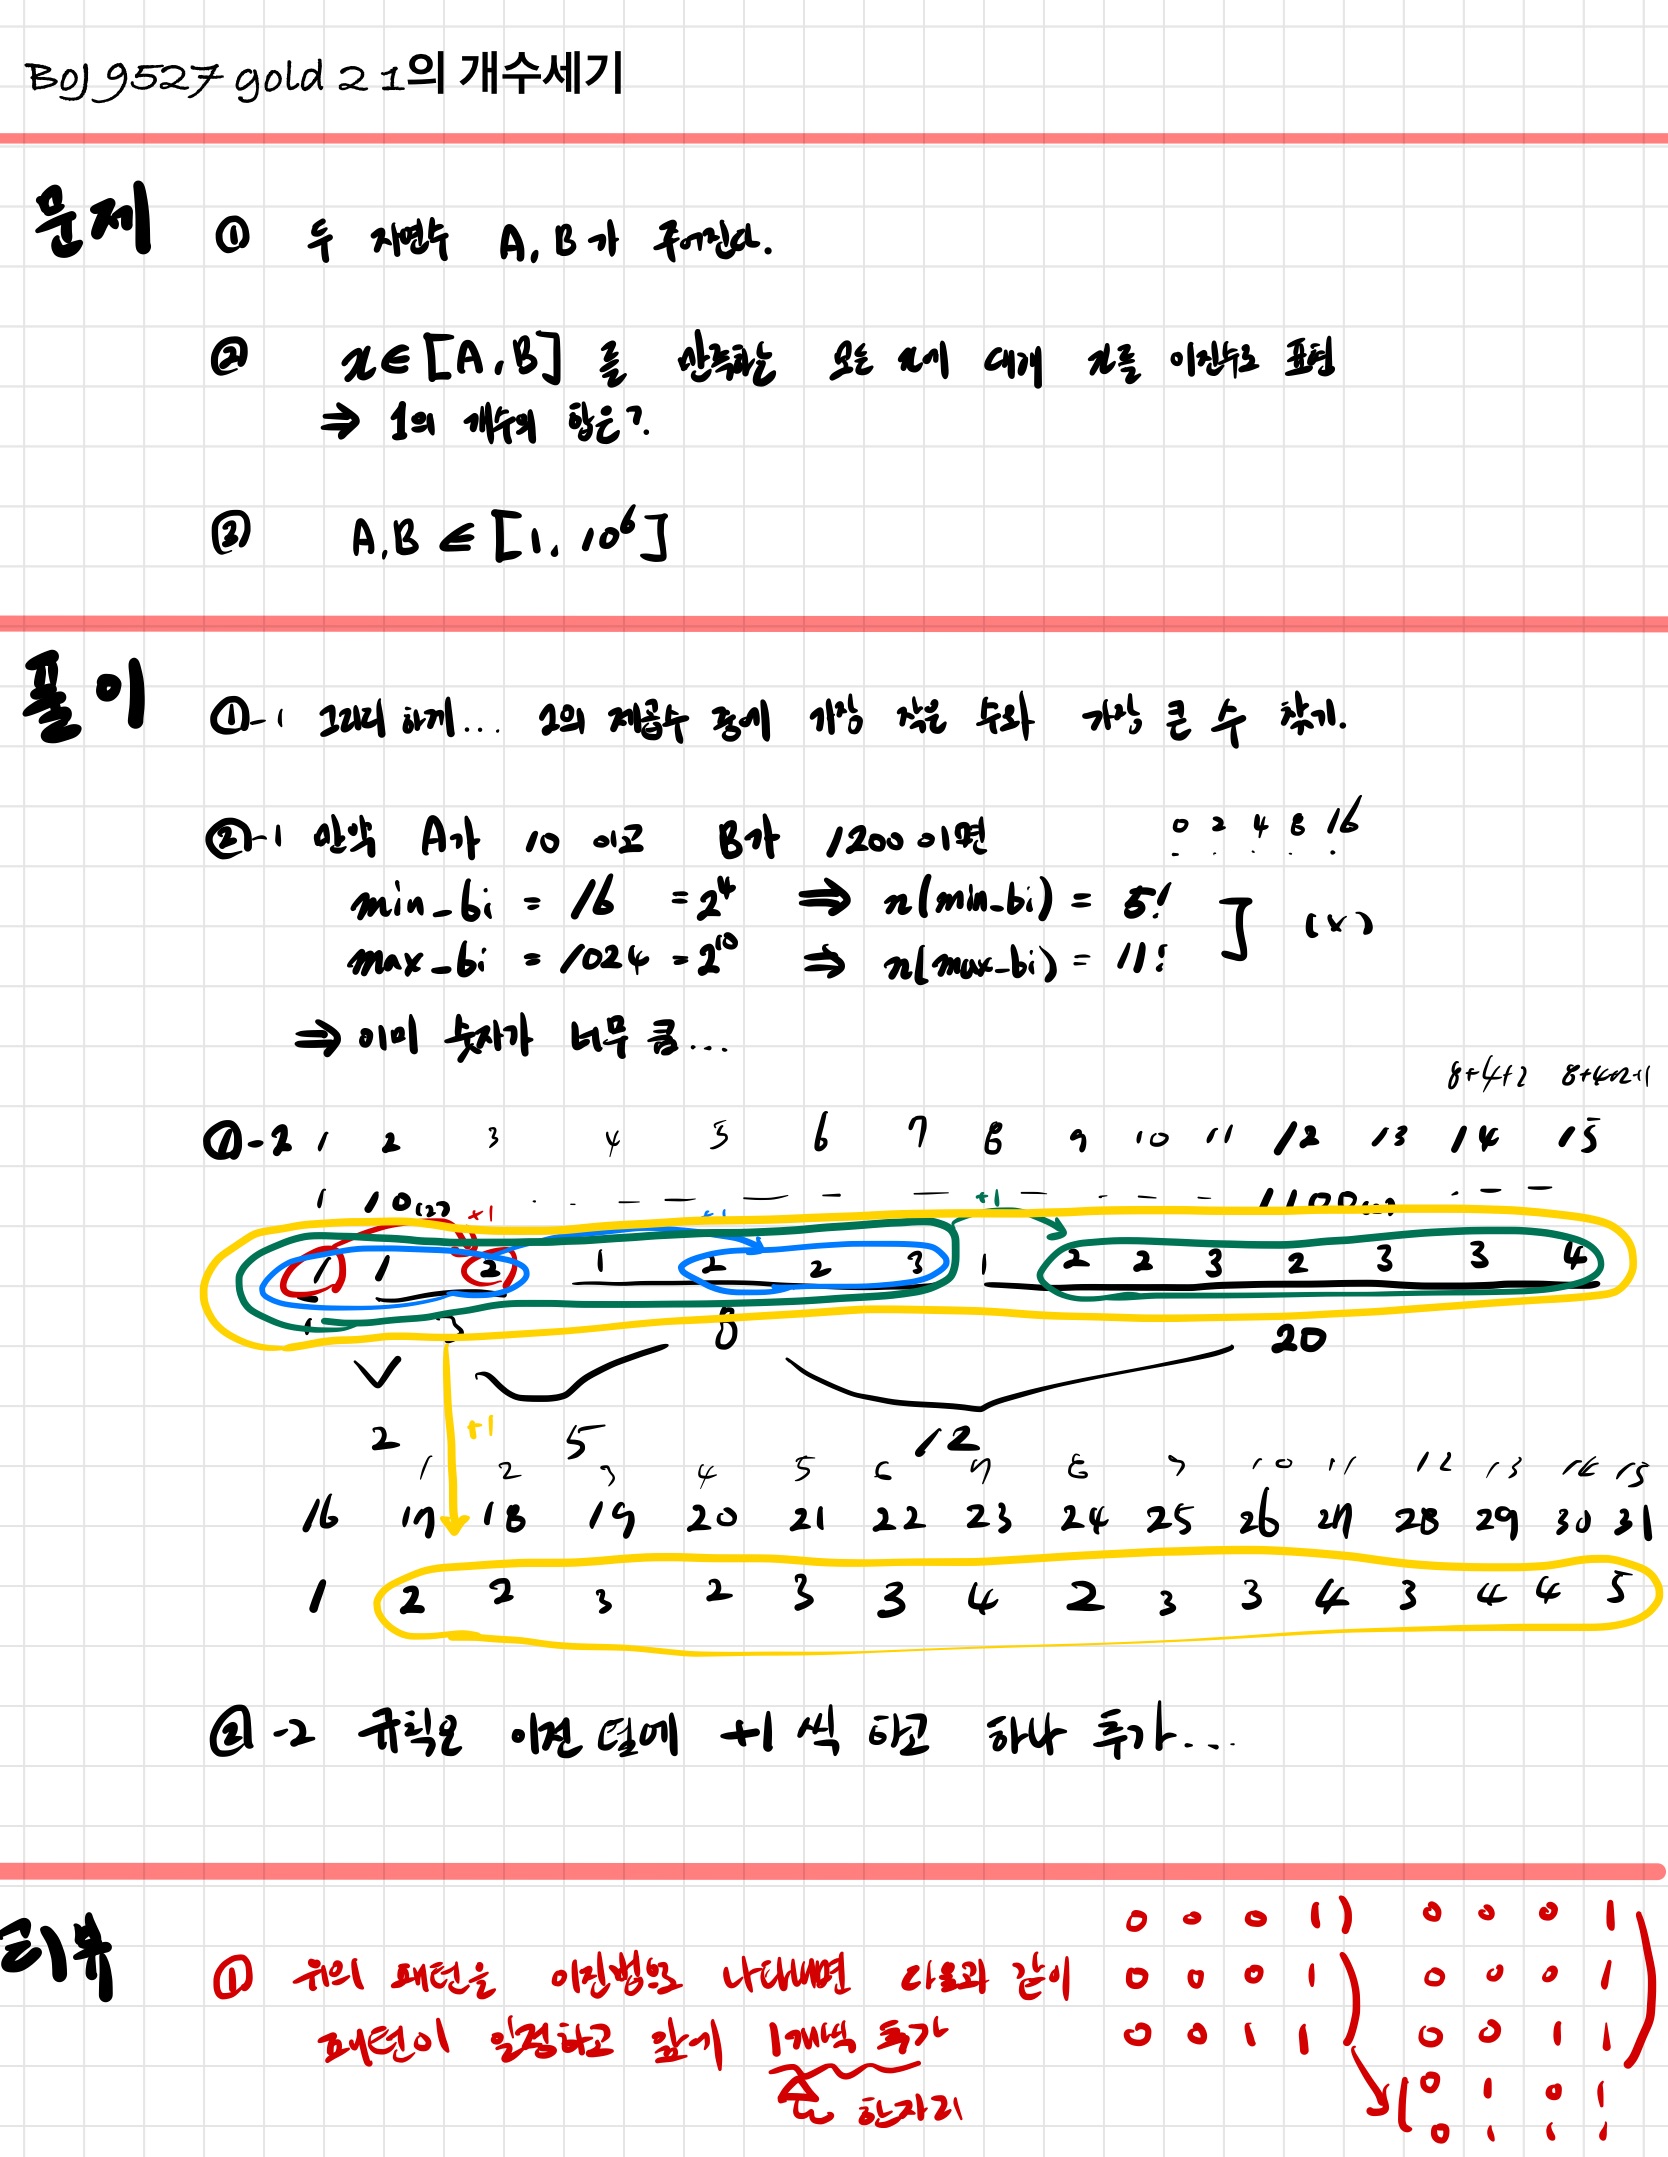 BOJ 9527 gold 2 1의 개수세기
문제
① 두 자연수 A, B가 주어진다.
② x∈[A, B] 를 만족하는 모든 x에 대해 x를 이진수로 표현
⇒ 1의 개수의 합은?
③ A,B ∈ [1, 10⁶]
풀이
①-1 그리디 하게... 2의 제곱수 중에 가장 작은 수와 가장 큰 수 찾기.
②-1 만약 A가 10 이고 B가 1200이면
0 2 4 8 16
min_bi = 16 = 2⁴ ⇒ n(min_bi) = 5!
max_bi = 1024 = 2¹⁰ ⇒ n(max_bi) = 11!
] (x)
⇒ 이미 숫자가 너무 큼...
8+4+2 8+4+2+1
①-2 1 2 3 4 5 6 7 8 9 10 11 12 13 14 15
1 10(2) 1100(2)
+1 +1 +1
1 1 2 1 2 2 3 1 2 2 3 2 3 3 4
1 3 8 20
2 5 12
+1
1 2 3 4 5 6 7 8 9 10 11 12 13 14 15
16 17 18 19 20 21 22 23 24 25 26 27 28 29 30 31
1 2 2 3 2 3 3 4 2 3 3 4 3 4 4 5
②-2 규칙은 이전 덩에 +1 씩 하고 하나 추가...
리뷰
① 위의 패턴을 이진법으로 나타내면 다음과 같이
패턴이 일정하고 앞에 1개씩 추가
한자리
0 0 0 1) 0 0 0 1
0 0 0 1 0 0 0 1
0 0 1 1 0 0 1 1
0 1 0 1
0 1 1 1